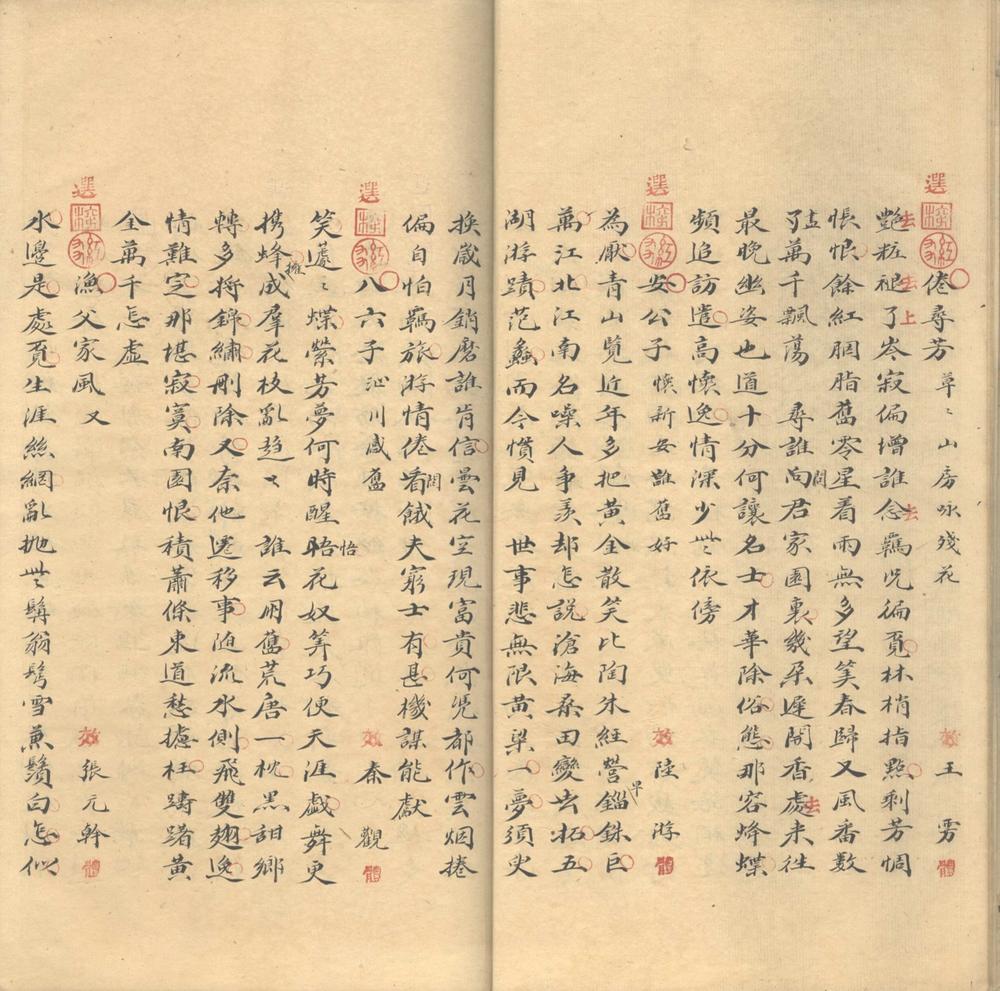 選 倦尋芳 草〻山房咏殘花 效王雱體
艷粧褪了岑寂偏增誰念羈況徧覓林梢指點剩芳惆
悵恨餘紅胭脂舊零星着雨無多望笑春歸又風番數
了萬千飄蕩 尋誰向君家園裏幾朵遲開香處來往
最晚幽姿也道十分何讓名士才華除俗態那容蜂蝶
頻追訪遣高懷逸情深少些依傍
選 安公子 懷新安諸舊好 效陸游體
為厭青山覽近年多把黃金散笑比陶朱經營錙銖巨
萬江北江南名噪人爭羨却怎說滄海桑田變去拓五
湖游蹟范蠡而今慣見 世事悲無限黃粱一夢須臾
換歲月銷磨誰肯信曇花空現富貴何凭都作雲烟捲
偏自怕羈旅游情倦看餓夫窮士有甚機謀能獻
選 八六子 沁川感舊 效秦觀體
笑蘧〻蝶縈芳夢何時醒晤花奴筭巧便天涯戲舞更
携蜂成羣花枝亂趂〻誰云朋舊荒唐一枕黑甜鄉
轉多將錦繡刪除又奈他遷移事隨流水側飛雙翅逸
情難定那堪寂寞南園恨積蕭條東道愁攄枉躊躇黃
全萬千怎虛
選 漁父家風 又 效張元幹體
水邊是處覓生涯絲網亂拋些鬅翁髩雪兼鬚白怎似